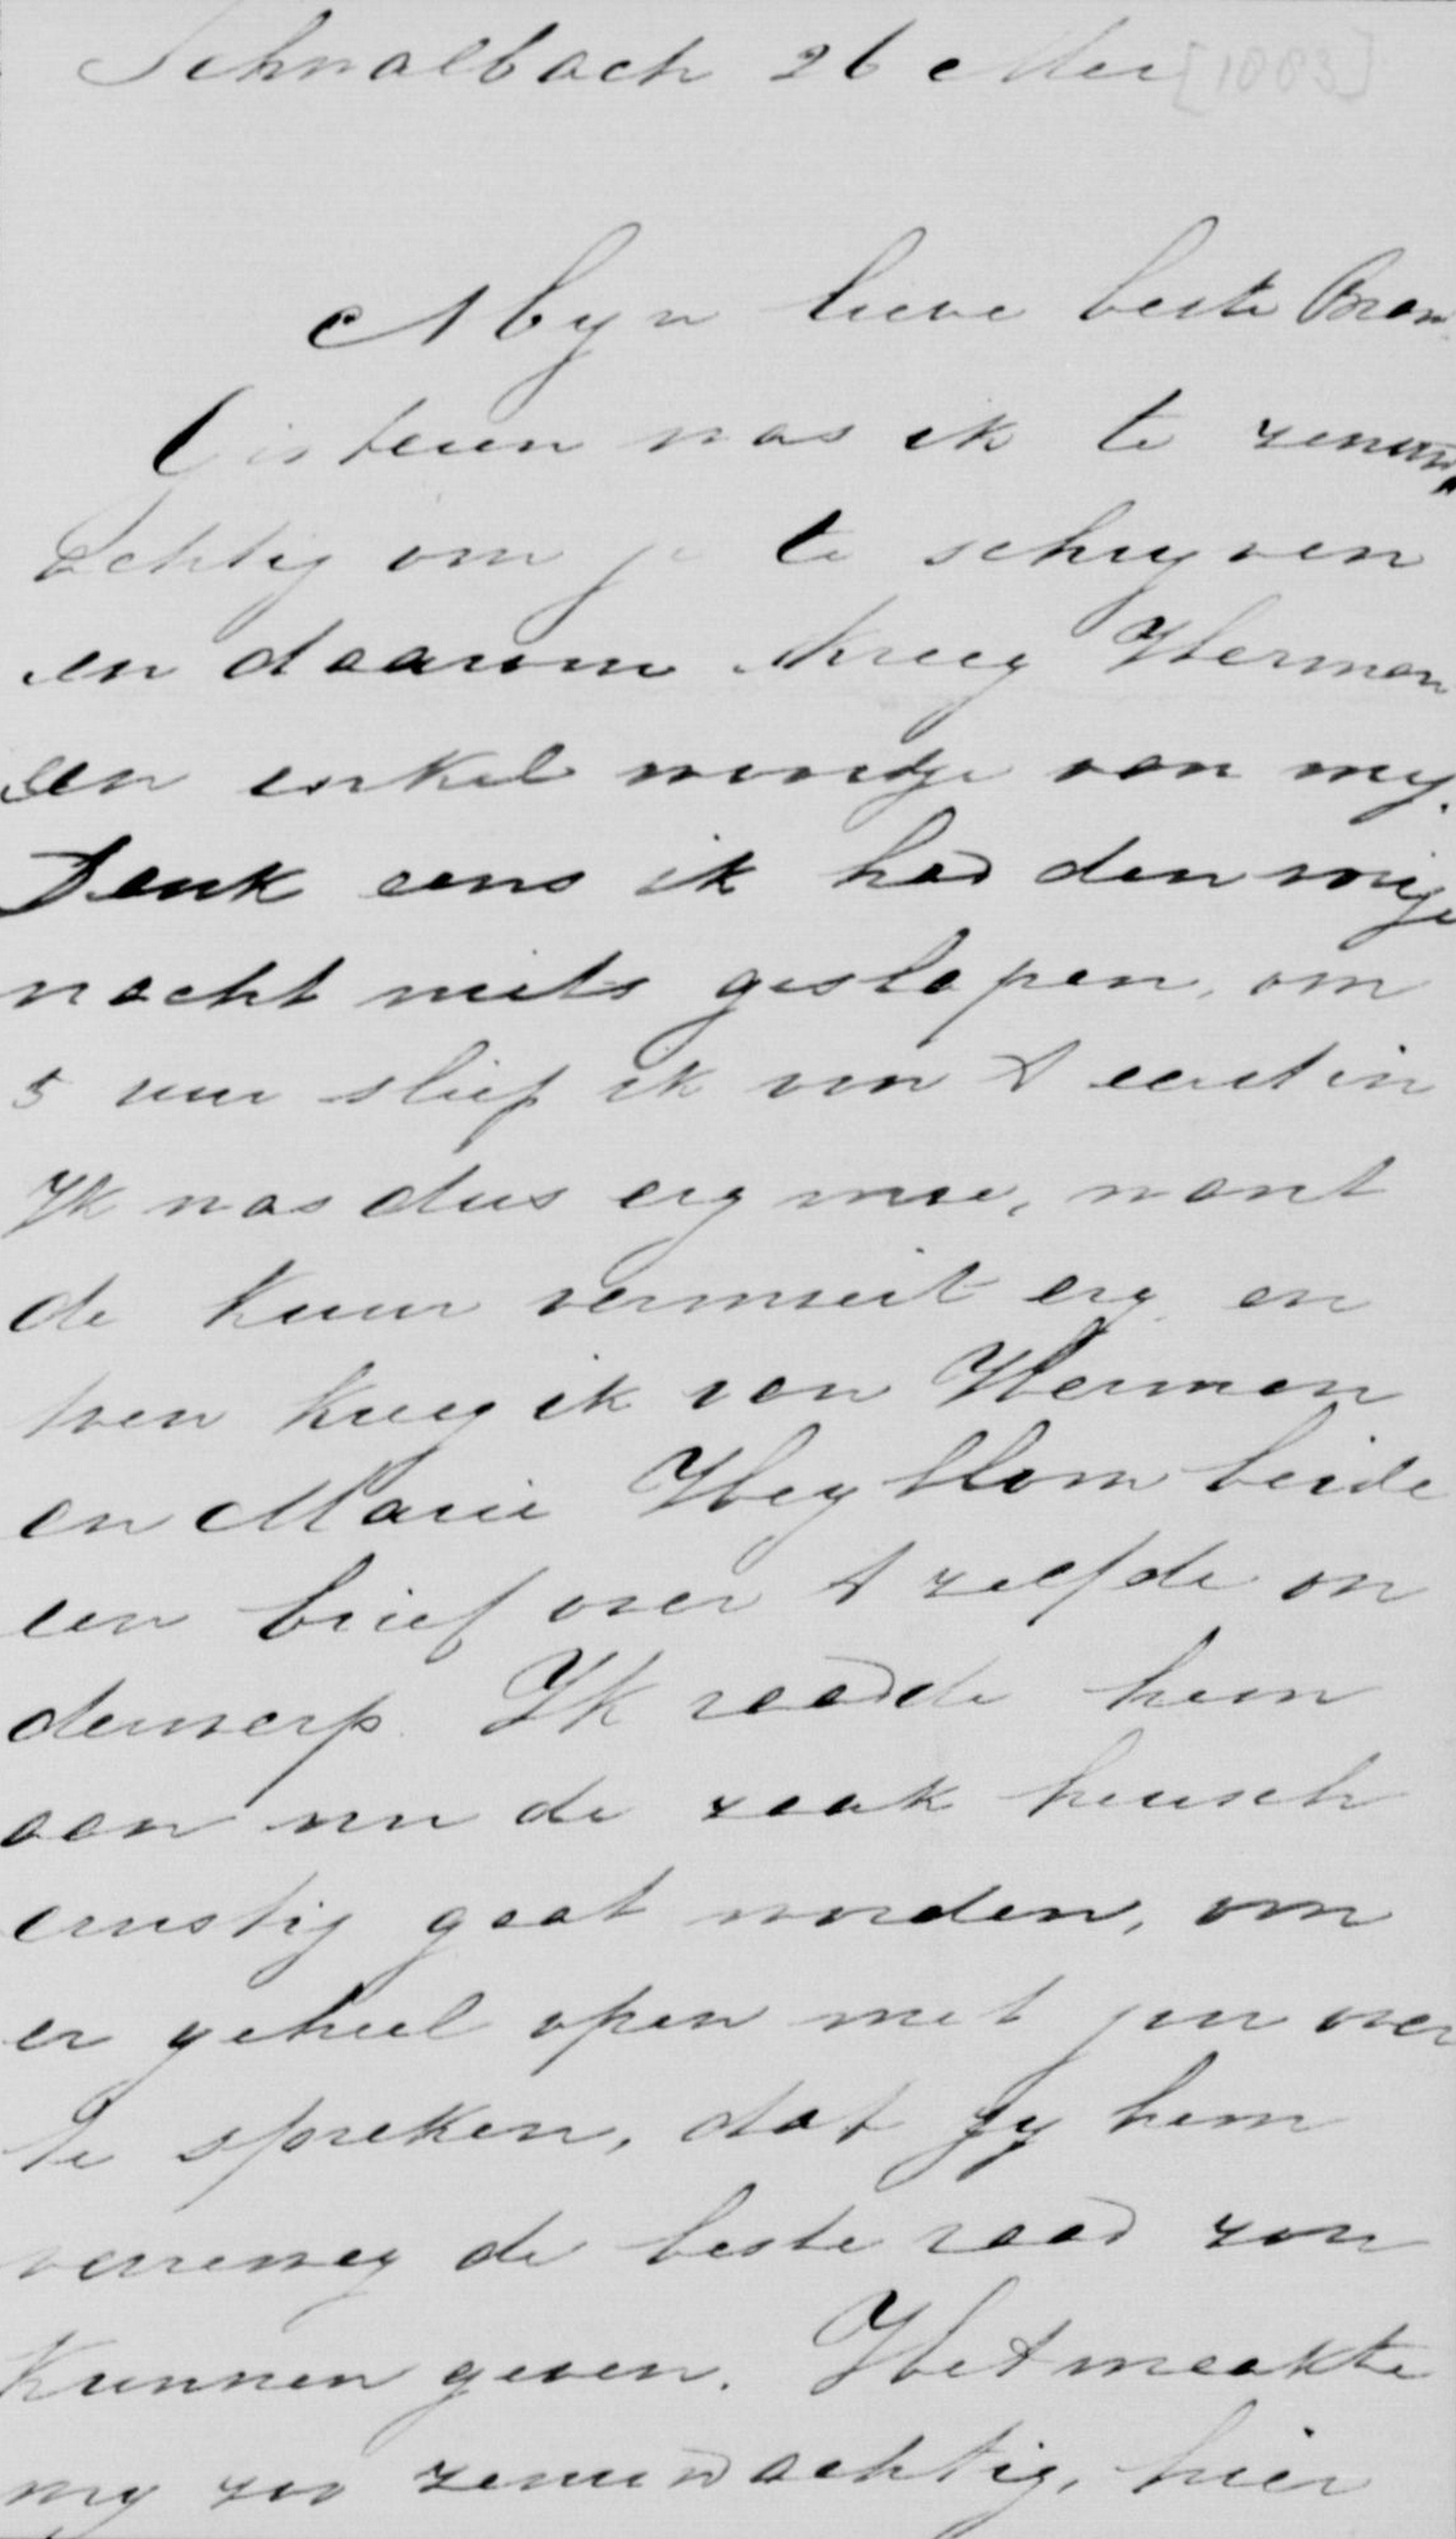 Schwalbach 26 Mei [1883]
Myn lieve beste Bram
Gisteren was ik te zenuw„
achtig om je te schryven
en daarom kreeg Herman
een enkel woordje van my.
Denk eens ik had den vorige
nacht niets geslapen, om
5 uur sliep ik voor 't eerst in
Ik was dus erg moe, want
de kuur vermoeit erg en
toen kreeg ik van Herman
en Marie Heyblom beide
een brief over 't zelfde on
derwerp. Ik raadde hem
aan nu de zaak heusch
ernstig gaat worden, om
er geheel open met jou over
te spreken, dat jy hem
verreweg de beste raad zou
kunnen geven. Het maakte
my zoo zenuwachtig, hier